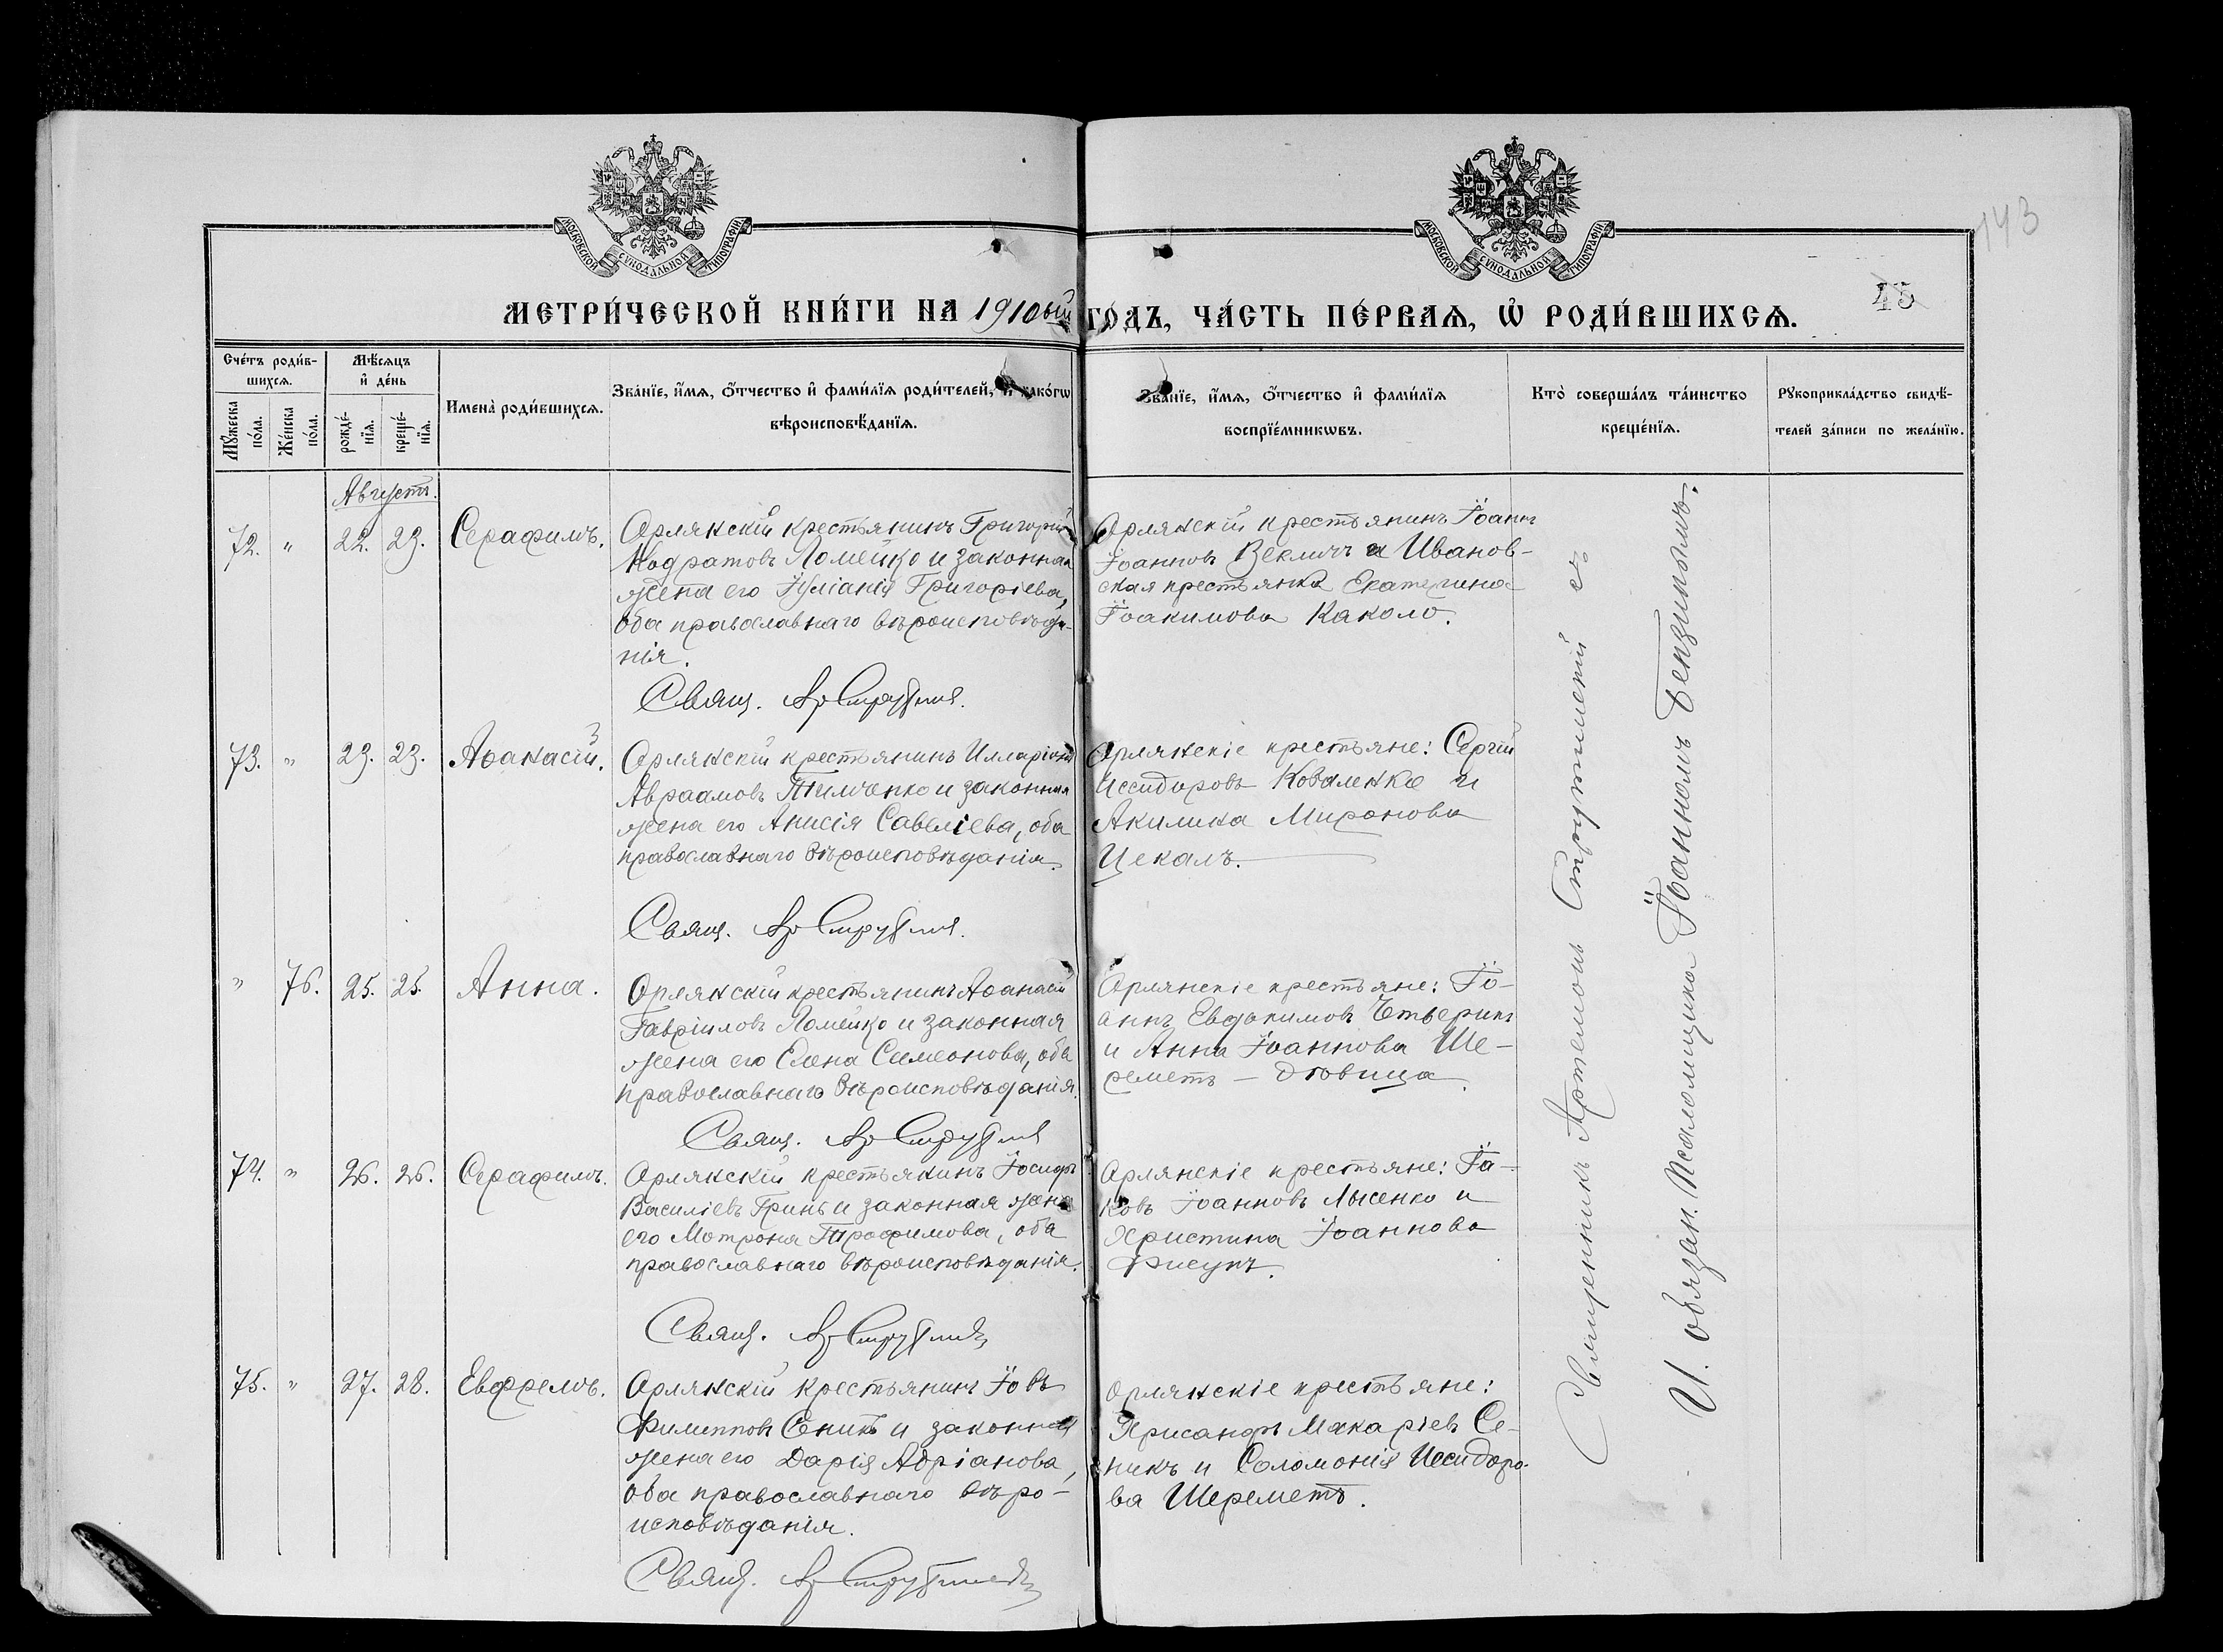 143
МОСКОВСКОЙ СУНОДАЛЬНОЙ ТИПОГРАФІИ
МОСКОВСКОЙ СУНОДАЛЬНОЙ ТИПОГРАФІИ
45
МЕТРИ́ЧЕСКОЙ КНИ́ГИ НА 1910ый ГО́ДЪ, ЧА́СТЬ ПЕ́РВАѦ, Ѡ҆ РОДИ́ВШИХСѦ.
Сче́тъ роди́в-
шихсѧ.
Мѣ́сѧцъ
и҆ де́нь
Мꙋ́жеска
по́ла.
Же́нска
по́ла.
рожде́-
нїѧ.
креще́-
нїѧ.
Имена̀ роди́вшихсѧ.
Зва́нїе, и҆́мѧ, ѻ҆́тчество и҆ фами́лїѧ роди́телей, и҆ како́гѡ
вѣроисповѣ́данїѧ.
Зва́нїе, и҆́мѧ, ѻ҆́тчество и҆ фами́лїѧ
воспрїе́мникѡвъ.
Кто̀ соверша́лъ та́инство
креще́нїѧ.
Рꙋкоприкла́дство свидѣ́-
телей за́писи по жела́нїю.
Августъ.
72. " 22. 23. Серафимъ.
Орлянскій крестьянинъ Григорій
Кодратовъ Ломейко и законная
жена его Іуліанія Григоріева,
оба православнаго вѣроисповѣда-
нія.
Свящ.
Орлянскій крестьянинъ Іоаннъ
Іоанновъ Векличъ и Иванов-
ская крестьянка Екатерина
Іоакимова Каколо.
73. " 23. 23. Аѳанасій.
Орлянскій крестьянинъ Илларіонъ
Авраамовъ Тимченко и законная
жена его Анисія Савеліева, оба
православнаго вѣроисповѣданія.
Свящ.
Орлянскіе крестьяне: Сергій
Исидоровъ Коваленко и
Акилина Миронова
Цекалъ.
" 76. 25. 25. Анна.
Орлянскій крестьянинъ Аѳанасій
Гавріиловъ Ломейко и законная
жена его Елена Симеонова, оба
православнаго вѣроисповѣданія.
Свящ.
Орлянскіе крестьяне: Іо-
аннъ Евдокимовъ Четверикъ
и Анна Іоаннова Ше-
реметъ – дѣвица.
74. " 26. 26. Серафимъ.
Орлянскій крестьянинъ Іосифъ
Василіевъ Гринь и законная жена
его Мотрона Трофимова, оба
православнаго вѣроисповѣданія.
Свящ.
Орлянскіе крестьяне: Іа-
ковъ Іоанновъ Лысенко и
Христина Іоаннова
Фисунъ.
75. " 27. 28. Евфремъ.
Орлянскій крестьянинъ Іовъ
Филипповъ Сеникъ и законная
жена его Дарія Адріанова,
оба православнаго вѣро-
исповѣданія.
Свящ.
Орлянскіе крестьяне:
Хрисанфъ Макаріевъ Се-
никъ и Соломонія Исидоро-
ва Шереметъ.
Священникъ Артемонъ съ
И. обязан. Псаломщика Іоанномъ